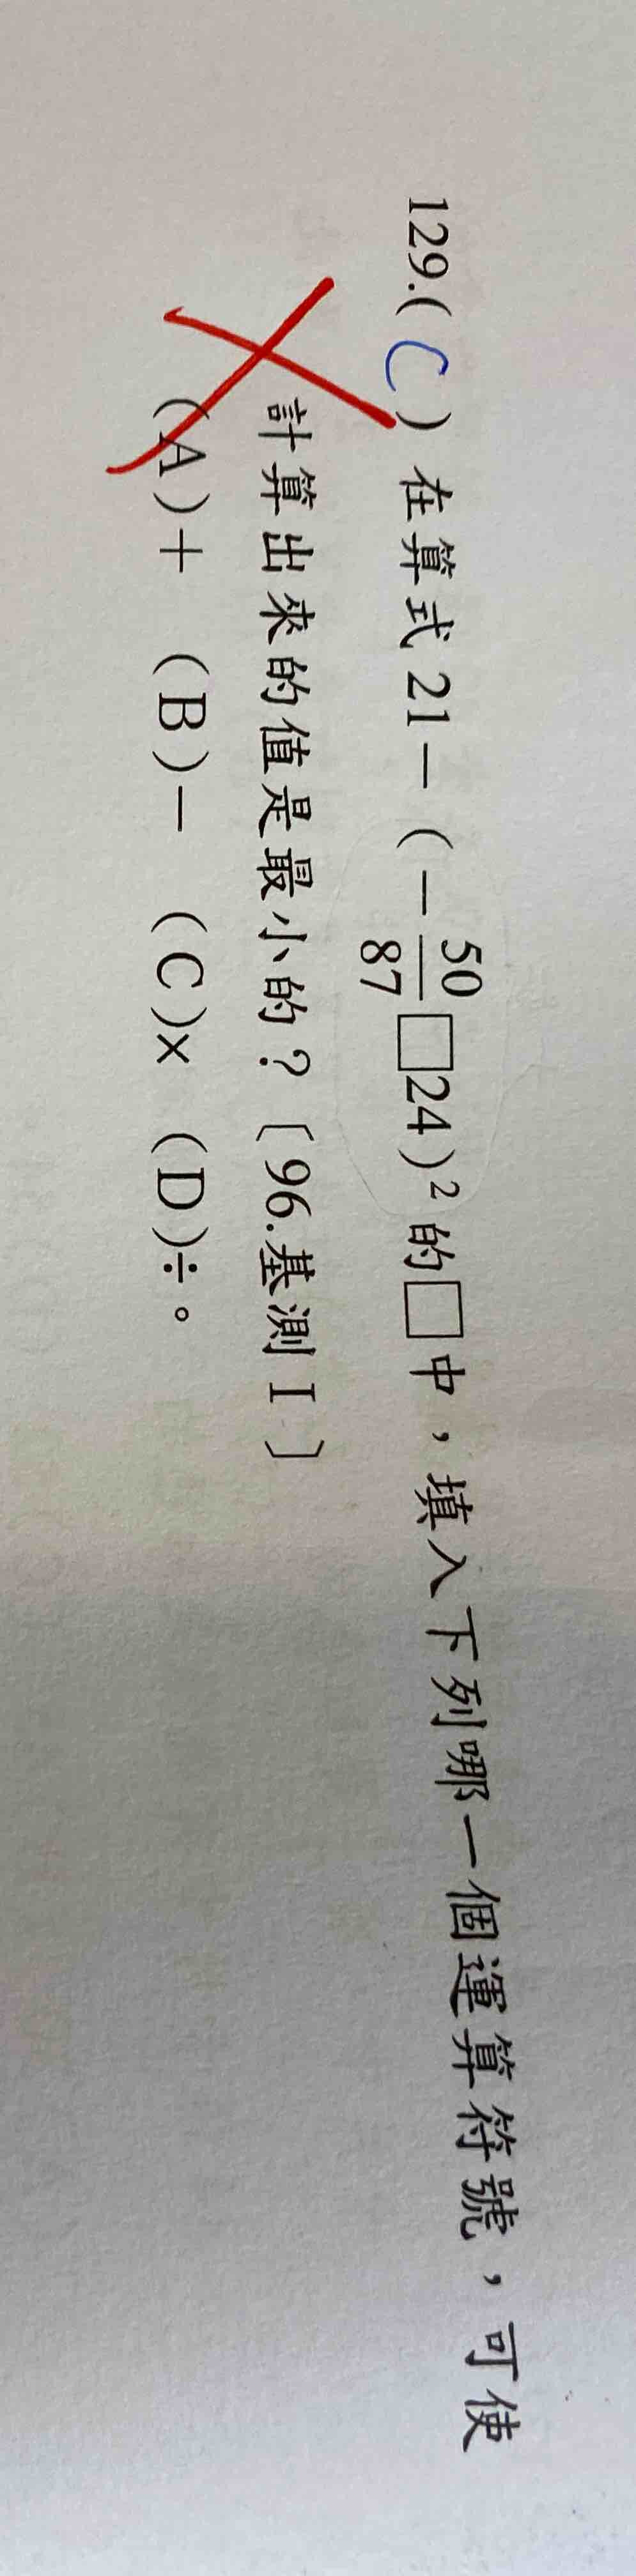 129.( C ) 在算式 21－（－50/87□24）² 的□中，填入下列哪一個運算符號，可使
計算出來的值是最小的？〔96.基測Ⅰ〕
（A）＋　（B）－　（C）×　（D）÷。